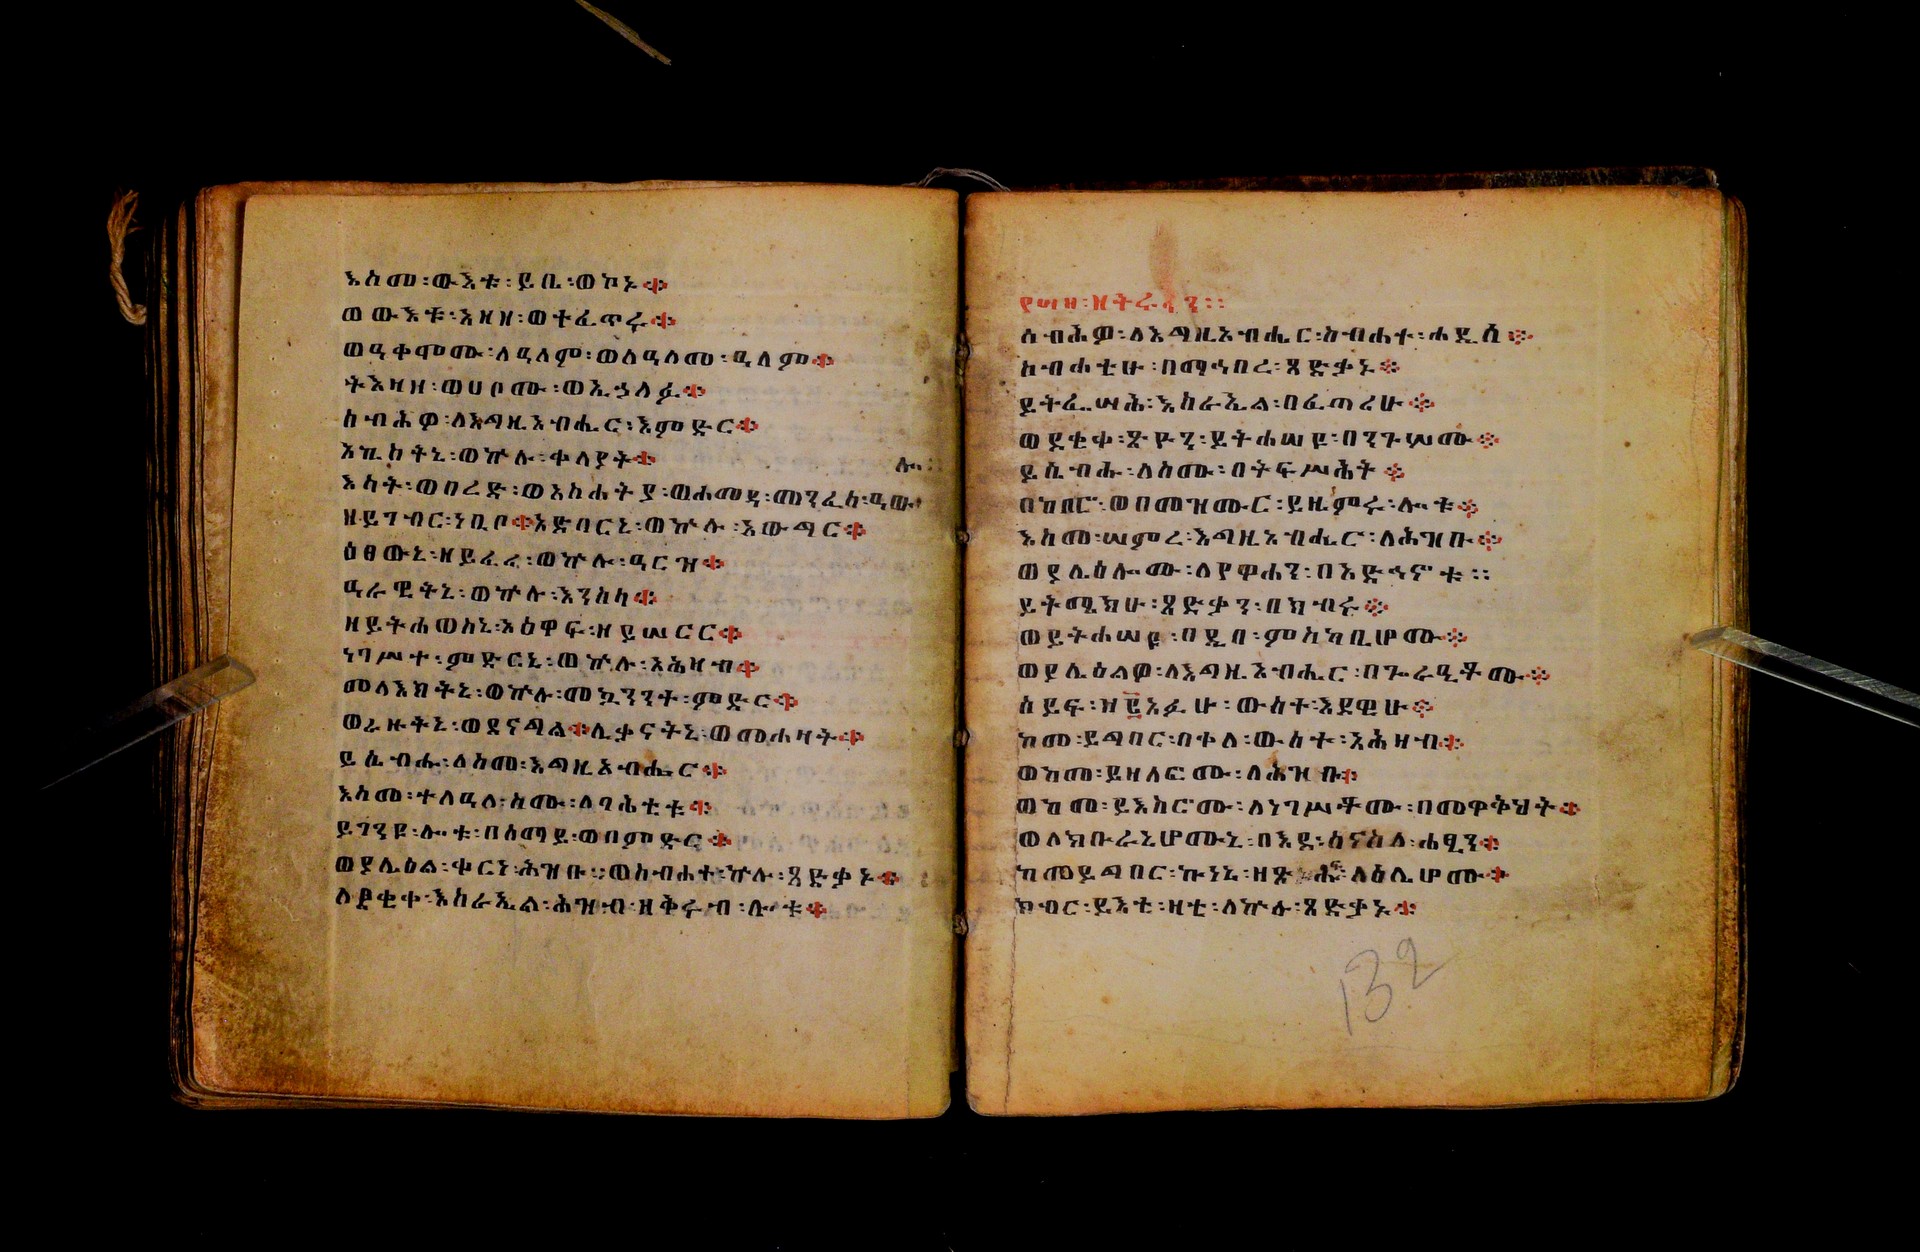 እስመ፡ውእቱ፡ይቤ፡ወኮኑ፨
ወውእቱ፡አዘዘ፡ወተፈጥሩ፨
ወዓቀሞሙ፡ለዓለም፡ወለዓለመ፡ዓለም፨
ትእዛዘ፡ወሀቦሙ፡ወኢኃለፈ፨
ሰብሕዎ፡ለእግዚአብሔር፡እምድር፨
እኪስትኒ፡ወኵሉ፡ቀላያት፨
ሉ፡፡
እሳት፡ወበረድ፡ወአስሐትያ፡ወሐመዳ፡መንፈሰ፡ዓው
ዘይገብር፡ነቢቦ፨አድባርኒ፡ወኵሉ፡አውግር፨
ዕፀውኒ፡ዘይፈሪ፡ወኵሉ፡ዓርዝ፨
ዓራዊትኒ፡ወኵሉ፡እንስሳ፨
ዘይትሐወስኒ፡አዕዋፍ፡ዘይሠርር፨
ነገሥተ፡ምድርኒ፡ወኵሉ፡አሕዛብ፨
መላእክትኒ፡ወኵሉ፡መኳንንት፡ምድር፨
ወራዙትኒ፡ወደናግል፨ሊቃናትኒ፡ወመሐዛት፨
ይሴብሑ፡ለስመ፡እግዚአብሔር፨
እስመ፡ተለዓለ፡ስሙ፡ለባሕቲቱ፨
ይገንዩ፡ሎቱ፡በሰማይ፡ወበምድር፨
ወያሌዕል፡ቀርነ፡ሕዝቡ፡፡ወስብሐተ፡ኵሉ፡ጻድቃኑ፨
ለደቂቀ፡እስራኤል፡ሕዝብ፡ዘቅሩብ፡ሎቱ፨
ሰብሕዎ፡ለእግዚአብሔር፡ስብሐተ፡ሐዲሰ፨
ስብሐቲሁ፡በማኅበረ፡ጻድቃኑ፨
ይትፌሣሕ፡እስራኤል፡በፈጣሪሁ፨
ወደቂቀ፡ጽዮን፡ይትሐሠዩ፡በንጉሦሙ፨
ይሴብሑ፡ለስሙ፡በትፍሥሕት፨
በከበሮ፡ወበመዝሙር፡ይዜምሩ፡ሎቱ፨
እስመ፡ሠምረ፡እግዚአብሔር፡ለሕዝቡ፨
ወያሌዕሎሙ፡ለየዋሐን፡በአድኅኖቱ፡፡
ይትሜክሁ፡ጻድቃን፡በክብሩ፨
ወይትሐሠዩ፡በዲበ፡ምስካቢሆሙ፨
ወያሌዕልዎ፡ለእግዚአብሔር፡በጐራዒቶሙ፨
ሰይፍ፡ዘ፪አፈሁ፡ውስተ፡እደዊሁ፨
ከመ፡ይግበር፡በቀለ፡ውስተ፡አሕዛብ፨
ወከመ፡ይዘለፍሙ፡ለሕዝቡ፨
ወከመ፡ይእስሮሙ፡ለነገሥቶሙ፡በመዋቅህት፨
ወለክቡራኒሆሙኒ፡በእደ፡ሰናስለ፡ሐፂን፨
ክብር፡ይእቲ፡ዛቲ፡ለኵሉ፡ጻድቃኑ፨
132